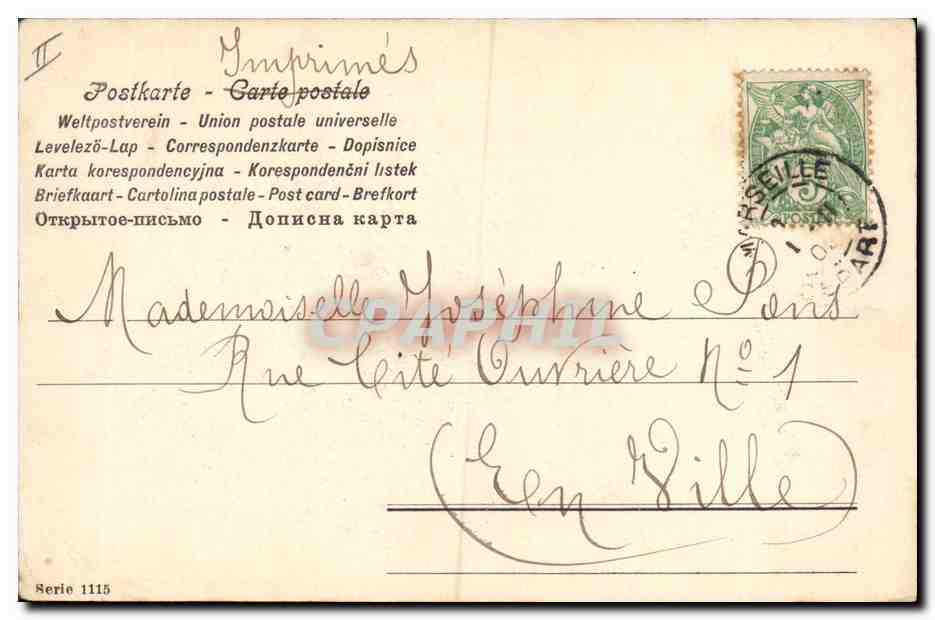 II
Imprimés
Postkarte - Carte postale
Weltpostverein - Union postale universelle
Levelező-Lap - Correspondenzkarte - Dopisnice
Karta korespondencyjna - Korespondenčni listek
Briefkaart - Cartolina postale - Post card - Brefkort
Открытое-письмо - Дописна карта
MARSEILLE
5
POSTES
Mademoiselle Joséphine Pons
CPAPHIL
Rue Cité Ouvrière No 1
(En Ville)
Serie 1115